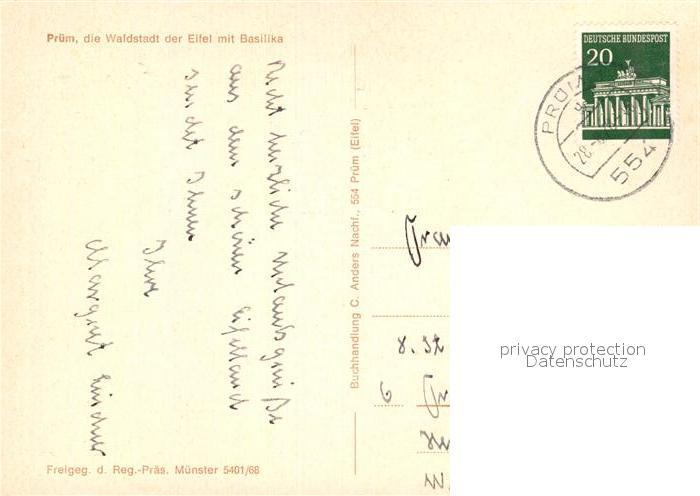 Prüm, die Waldstadt der Eifel mit Basilika
Recht herzliche Urlaubsgrüße
aus dem schönen Eifelland
sendet Ihnen
Ihre
Margret
Freigeg. d. Reg.-Präs. Münster 5401/68
Buchhandlung C. Anders Nachf., 554 Prüm (Eifel)
DEUTSCHE BUNDESPOST
20
PRÜM
28
554
8.
6
privacy protection
Datenschutz